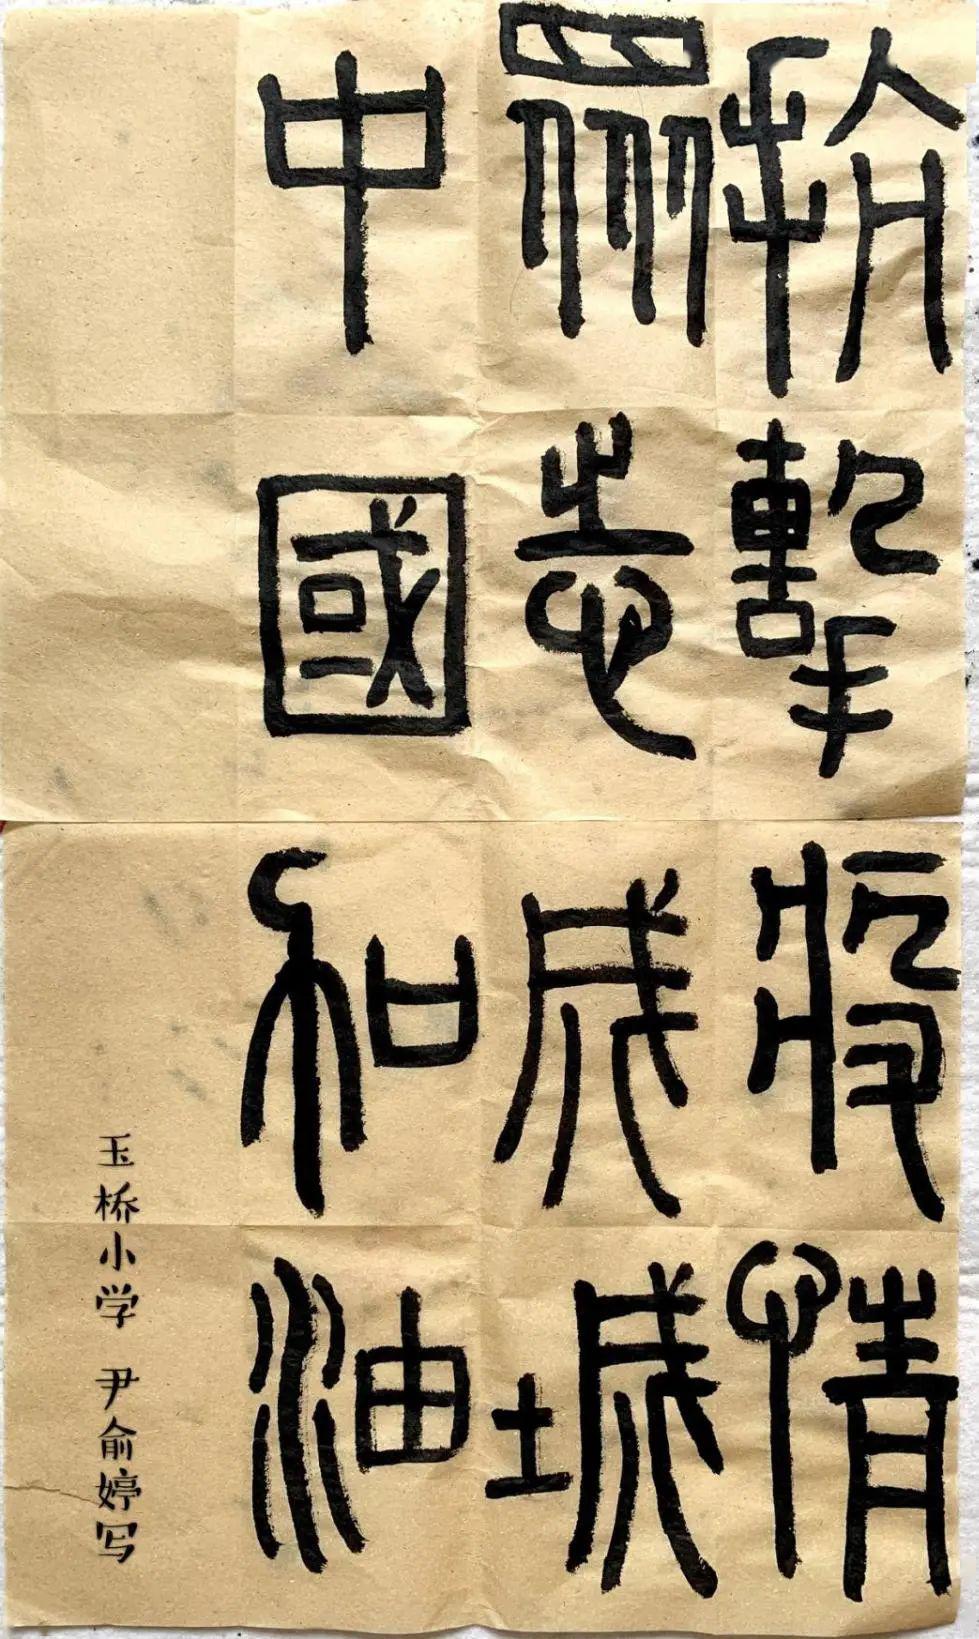 抗擊疫情
眾志成城
中國加油
玉桥小学 尹俞婷写